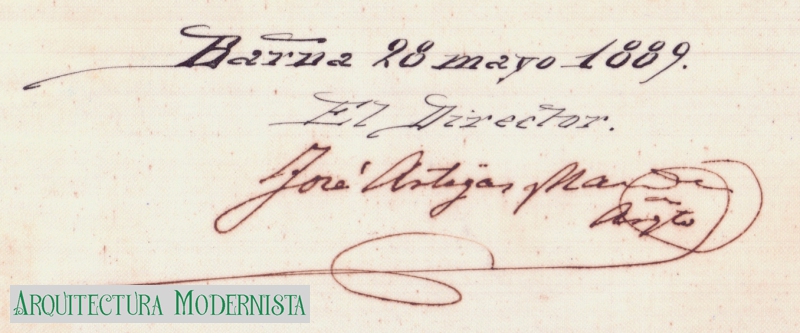 Barna 28 mayo 1889.
El Director.
José Artigas
Arqto
ARQUITECTURA MODERNISTA